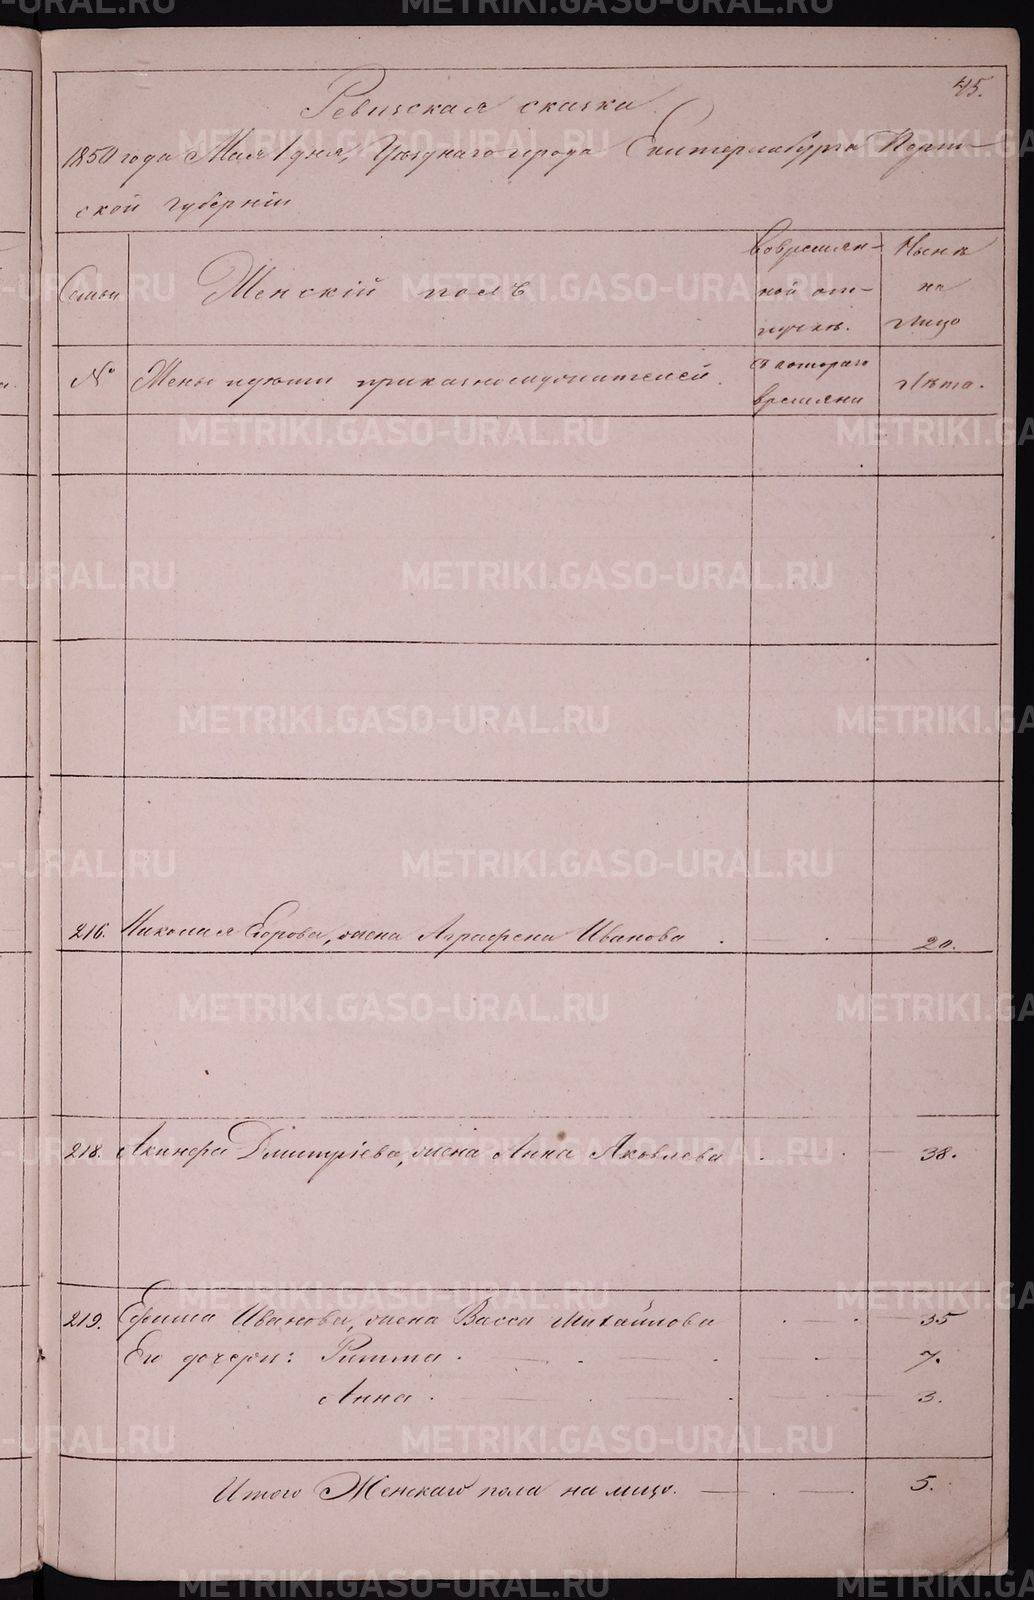 45.
Ревизская сказка
1850 года Мая 1 дня, Уезднаго города Екатеринбурга Перм-
ской губернiи
Семьи
Женскiй полъ
Вовремян-
ной от-
лучкѣ.
Нынѣ
на
лицо
№
Жены
Съ котораго
времяни
Лѣта.
216. Николая Егорова, жена Аграфена Иванова . — . — 20.
218. Акинфа Дмитрiева, жена Анна Яковлева . . — 38.
219. Ефима Иванова, жена Васса Михайлова . — . 35
Его дочери: Римма . — . . . 7.
Анна . — . — . — . 3.
Итого Женскаго пола на лицо. — . — 5.
METRIKI.GASO-URAL.RU